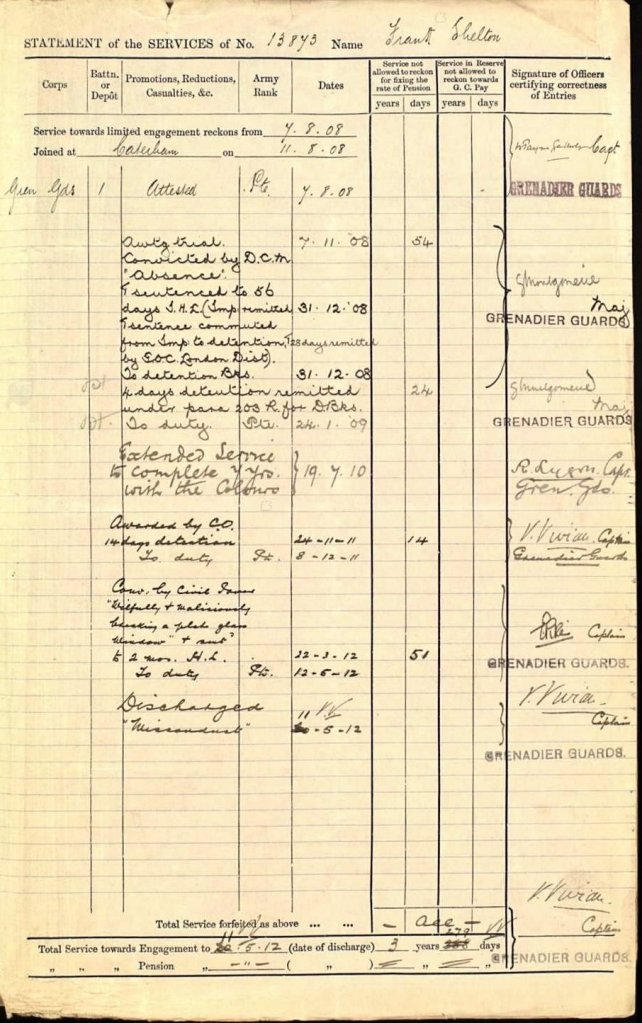 STATEMENT of the SERVICES of No. 13873 Name Frank Shelton
Corps
Battn. or Depôt
Promotions, Reductions, Casualties, &c.
Army Rank
Dates
Service not allowed to reckon for fixing the rate of Pension
years days
Service in Reserve not allowed to reckon towards G. C. Pay
years days
Signature of Officers certifying correctness of Entries
Service towards limited engagement reckons from 7.8.08
Joined at Caterham on 11.8.08
Capt
Gren Gds 1 Attested Pte. 7.8.08
GRENADIER GUARDS
Awtg trial. 7.11.08 54
Convicted by D.C.M.
"Absence".
& sentenced to 56
days I.H.L. (Imp remitted 31.12.'08
& sentence commuted
from Imp to detention, & 28 days remitted
by G.O.C. London Dist).
GMontgomerie
Maj
GRENADIER GUARDS
To detention Bks. 31.12.08
4 days detention remitted 24
under para 203 R. for D.Bks.
To duty. Pte. 24.1.09
GMontgomerie
Maj
GRENADIER GUARDS
Extended Service
to complete 7 yrs. 19.7.10
with the Colours
Capt.
Gren. Gds.
Awarded by C.O.
14 days detention 24-11-11 14
To duty Pt. 8-12-11
V. Vivian Captain
Grenadier Guards
Conv. by Civil Power
"Wilfully & Maliciously
breaking a plate glass
Window" & sent?
to 2 mos. H.L. 22-3-12 51
To duty Pt. 12-5-12
Captain
GRENADIER GUARDS.
Discharged 11 VV
"Misconduct" 20-5-12
V. Vivian
Captain
GRENADIER GUARDS.
V. Vivian
Captain
GRENADIER GUARDS.
Total Service forfeited as above ... ... – all –
Total Service towards Engagement to 11 VV 20.5.12 (date of discharge) 3 years 279 days VV
" " " Pension " –"– ( " ) = " = "